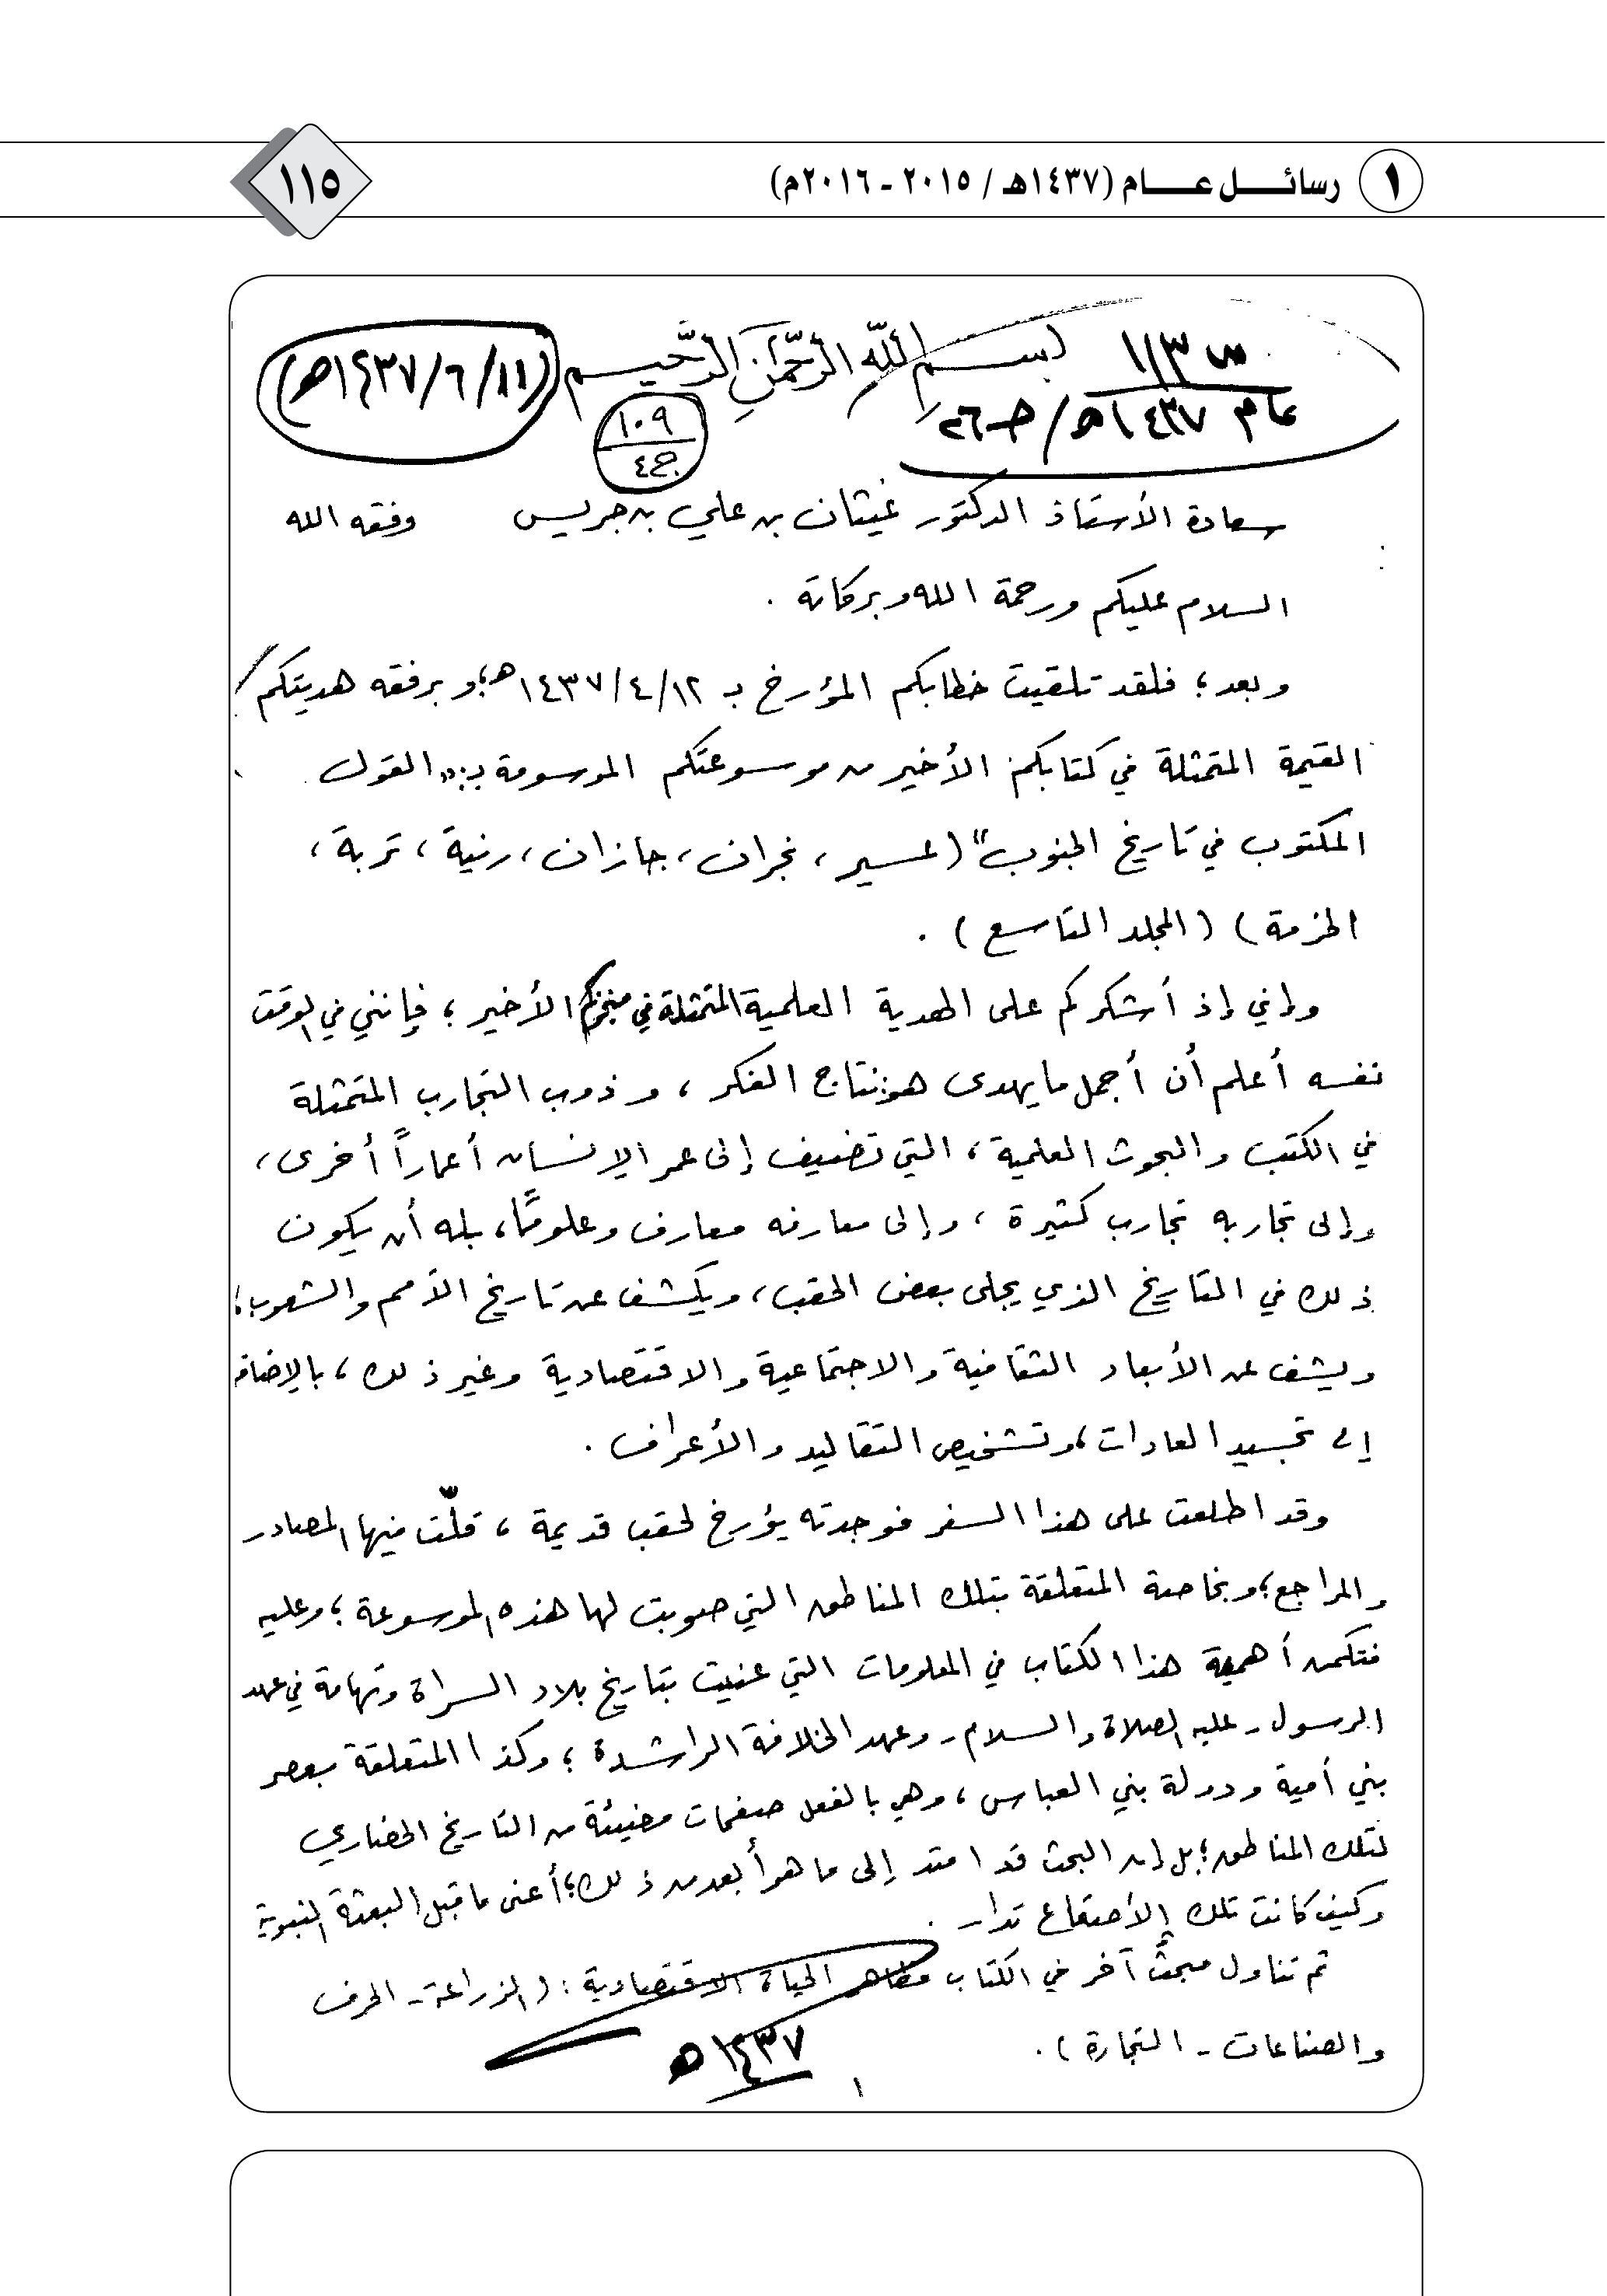 ١ رسائل عام (١٤٣٧هـ / ٢٠١٥ - ٢٠١٦م)
١١٥
بسم الله الرحمن الرحيم
س ١/٣
عام ١٤٣٧هـ / ج٢٦
(١١/٦/١٤٣٧هـ)
١٠٩
ج٤
سعادة الأستاذ الدكتور غيثان بن علي بن جريس وفقه الله
السلام عليكم ورحمة الله وبركاته .
وبعد ؛ فلقد تلقيت خطابكم المؤرخ بـ ١٢/٤/١٤٣٧هـ؛ وبرفقه هديتكم
القيمة المتمثلة في كتابكم الأخير من موسوعتكم الموسومة بـ: "القول
المكتوب في تاريخ الجنوب" (عسير ، نجران ، جازان ، رنية ، تربة ،
الخرمة) (المجلد التاسع) .
وإني إذ أشكركم على الهدية العلمية المتمثلة في منجزكم الأخير ؛ فإنني في الوقت
نفسه أعلم أن أجمل ما يهدى هو نتاج الفكر ، وذوب التجارب المتمثلة
في الكتب والبحوث العلمية ، التي تضيف إلى عمر الإنسان أعماراً أخرى ،
وإلى تجاربه تجارب كثيرة ، وإلى معارفه معارف وعلومًا ، بله أن يكون
ذلك في التاريخ الذي يجلى بعض الحقب ، ويكشف عن تاريخ الأمم والشعوب ؛
ويشف عن الأبعاد الثقافية والاجتماعية والاقتصادية وغير ذلك ، بالإضافة
إلى تجسيد العادات ، وتشخيص التقاليد والأعراف .
وقد اطلعت على هذا السفر فوجدته يؤرخ لحقب قديمة ، قلّت فيها المصادر
والمراجع ؛ وبخاصة المتعلقة بتلك المناطق التي صوبت لها هذه الموسوعة ؛ وعليه
فتكمن أهمية هذا الكتاب في المعلومات التي عنيت بتاريخ بلاد السراة وتهامة في عهد
الرسول - عليه الصلاة والسلام - وعهد الخلافة الراشدة ؛ وكذا المتعلقة بعصر
بني أمية ودولة بني العباس ، وهي بالفعل صفحات مضيئة من التاريخ الحضاري
لتلك المناطق ؛ بل إن البحث قد امتد إلى ما هو أبعد من ذلك ؛ أعنى ما قبل البعثة النبوية
وكيف كانت تلك الأصقاع تدار .
ثم تناول مبحثٌ آخر في الكتاب مظاهر الحياة الاقتصادية : (الزراعة - الحرف
والصناعات - التجارة ) .
١٤٣٧هـ
١